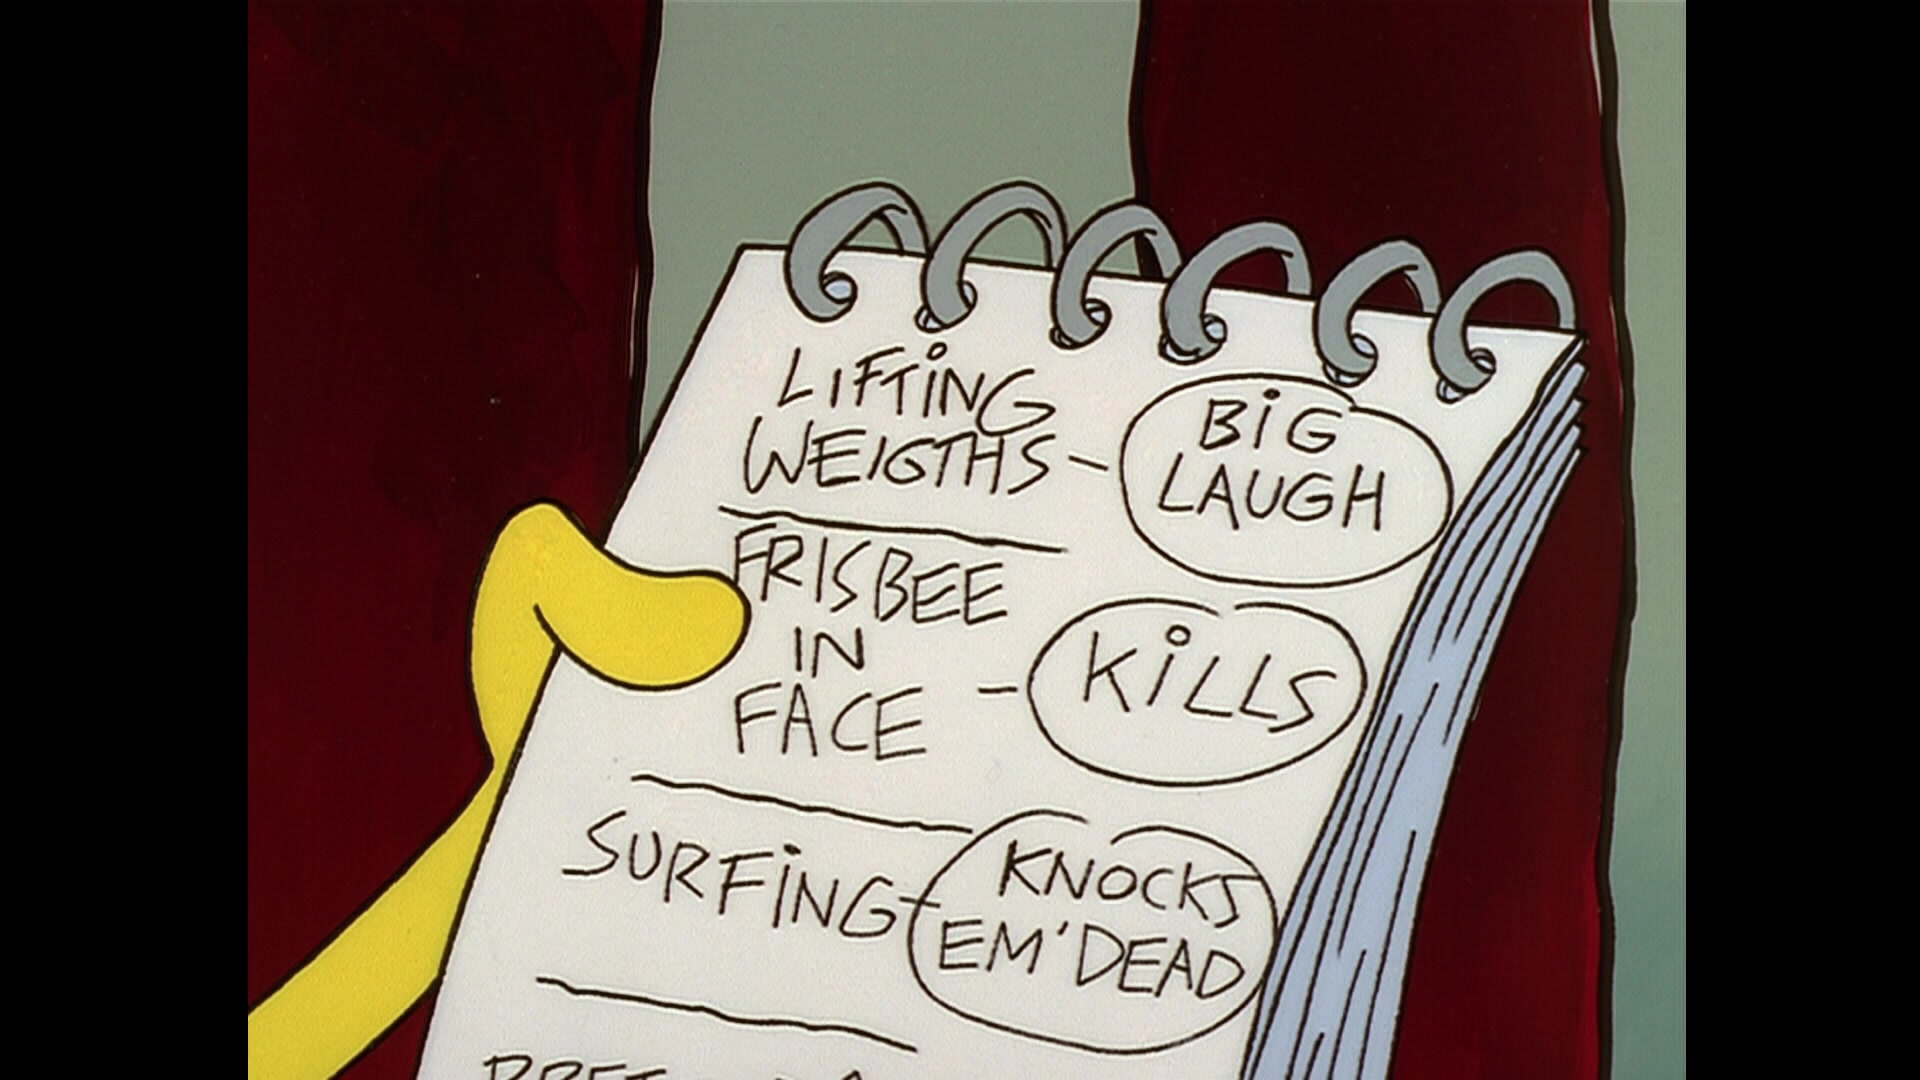 LIFTING
WEIGTHS -
BIG
LAUGH
FRISBEE
IN
FACE -
KILLS
SURFING -
KNOCKS
EM'DEAD